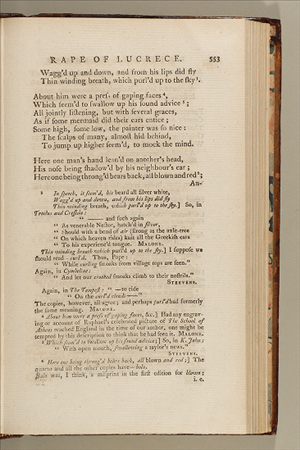 RAPE OF LUCRECE. 553
Wagg'd up and down, and from his lips did fly
Thin winding breath, which purl'd up to the sky³.
About him were a press of gaping faces⁴,
Which seem'd to swallow up his sound advice⁵;
All jointly listening, but with several graces,
As if some mermaid did their ears entice;
Some high, some low, the painter was so nice:
The scalps of many, almost hid behind,
To jump up higher seem'd, to mock the mind.
Here one man's hand lean'd on another's head,
His nose being shadow'd by his neighbour's ear;
Here one being throng'd bears back, all blown and red⁶;
An-
³ In speech, it seem'd, his beard all silver white,
Wagg'd up and down, and from his lips did fly
Thin winding breath, which purl'd up to the sky.] So, in
Troilus and Cressida:
" —— and such again
" As venerable Nestor, hatch'd in silver,
" Should with a bond of air (strong as the axle-tree
" On which heaven rides) knit all the Greekish ears
" To his experienc'd tongue. MALONE.
Thin winding breath which purl'd up to the sky.] I suppose we
should read curl'd. Thus, Pope:
" While curling smoaks from village tops are seen."
Again, in Cymbeline:
" And let our crooked smoaks climb to their nostrils."
STEEVENS.
Again, in The Tempest: " —to ride
" On the curl'd clouds——"
The copies, however, all agree; and perhaps purl'd had formerly
the same meaning. MALONE.
⁴ About him were a press of gaping faces, &c.] Had any engrav-
ing or account of Raphael's celebrated picture of The School of
Athens reached England in the time of our author, one might be
tempted by this description to think that he had seen it. MALONE.
⁵ Which seem'd to swallow up his sound advice;] So, in K. John:
" With open mouth, swallowing a taylor's news."
STEEVENS.
⁶ Here one being throng'd bears back, all blown and red;] The
quarto and all the other copies have—boln.
Boln was, I think, a misprint in the first edition for blown;
i. e.